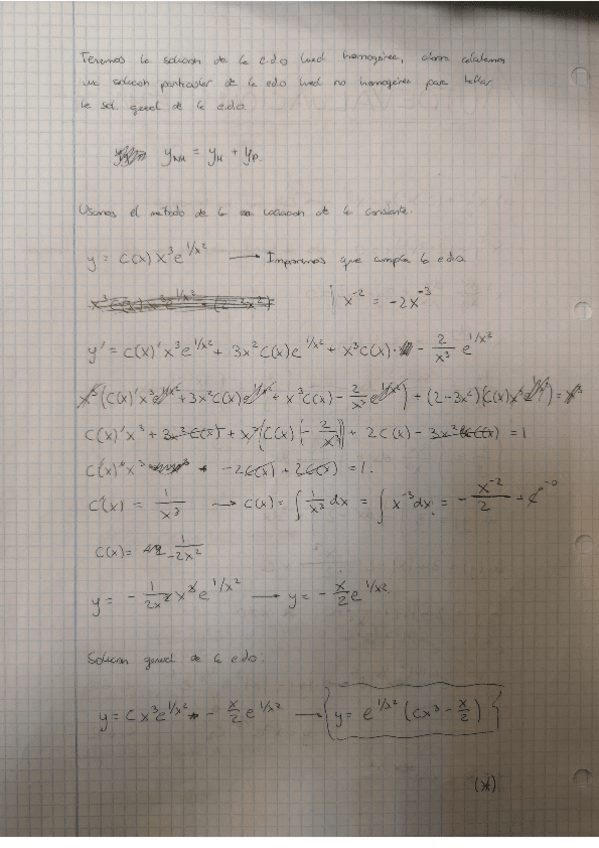 Tenemos la solución de la e.d.o lineal homogénea, ahora calculamos
una solución particular de la edo lineal no homogénea para hallar
la sol. general de la edo.
y_NH = y_H + y_P.
Usamos el método de la variación de la constante.
y = C(x) x³ e^{1/x²} → Imponemos que cumpla la edo
x⁻² = -2x⁻³
y' = C(x)' x³ e^{1/x²} + 3x² C(x) e^{1/x²} + x³ C(x) · - 2/x³ e^{1/x²}
x³ (C(x)' x³ e^{1/x²} + 3x² C(x) e^{1/x²} + x³ C(x) - 2/x³ e^{1/x²}) + (2-3x²)(C(x) x³ e^{1/x²}) = x³
C(x)' x³ + 3x² C(x) + x³ (C(x) (- 2/x³)) + 2C(x) - 3x² C(x) = 1
C(x)' x³ - 2C(x) + 2C(x) = 1.
C'(x) = 1/x³ → C(x) = ∫ 1/x³ dx = ∫ x⁻³ dx = - x⁻²/2 + C
C(x) = 1/-2x²
y = - 1/2x² x³ e^{1/x²} → y = - x/2 e^{1/x²}
Solución general de la edo:
y = C x³ e^{1/x²} - x/2 e^{1/x²} → y = e^{1/x²} (Cx³ - x/2)
(*)